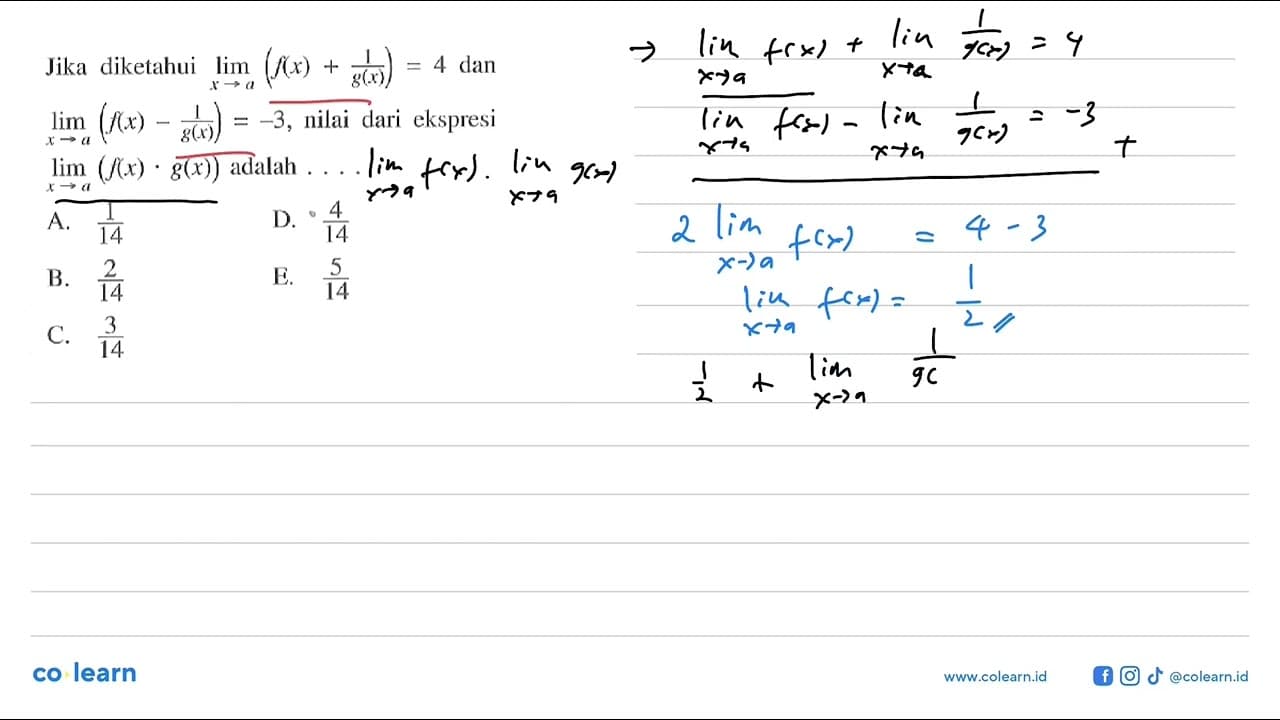 Jika diketahui lim x→a (f(x) + 1/g(x)) = 4 dan
lim x→a (f(x) − 1/g(x)) = −3, nilai dari ekspresi
lim x→a (f(x) · g(x)) adalah . . . . lim x→a f(x) . lim x→a g(x)
A. 1/14 D. 4/14
B. 2/14 E. 5/14
C. 3/14
→ lim x→a f(x) + lim x→a 1/g(x) = 4
lim x→a f(x) − lim x→a 1/g(x) = -3 +
2 lim x→a f(x) = 4 - 3
lim x→a f(x) = 1/2 //
1/2 + lim x→a 1/g(
co learn
www.colearn.id @colearn.id